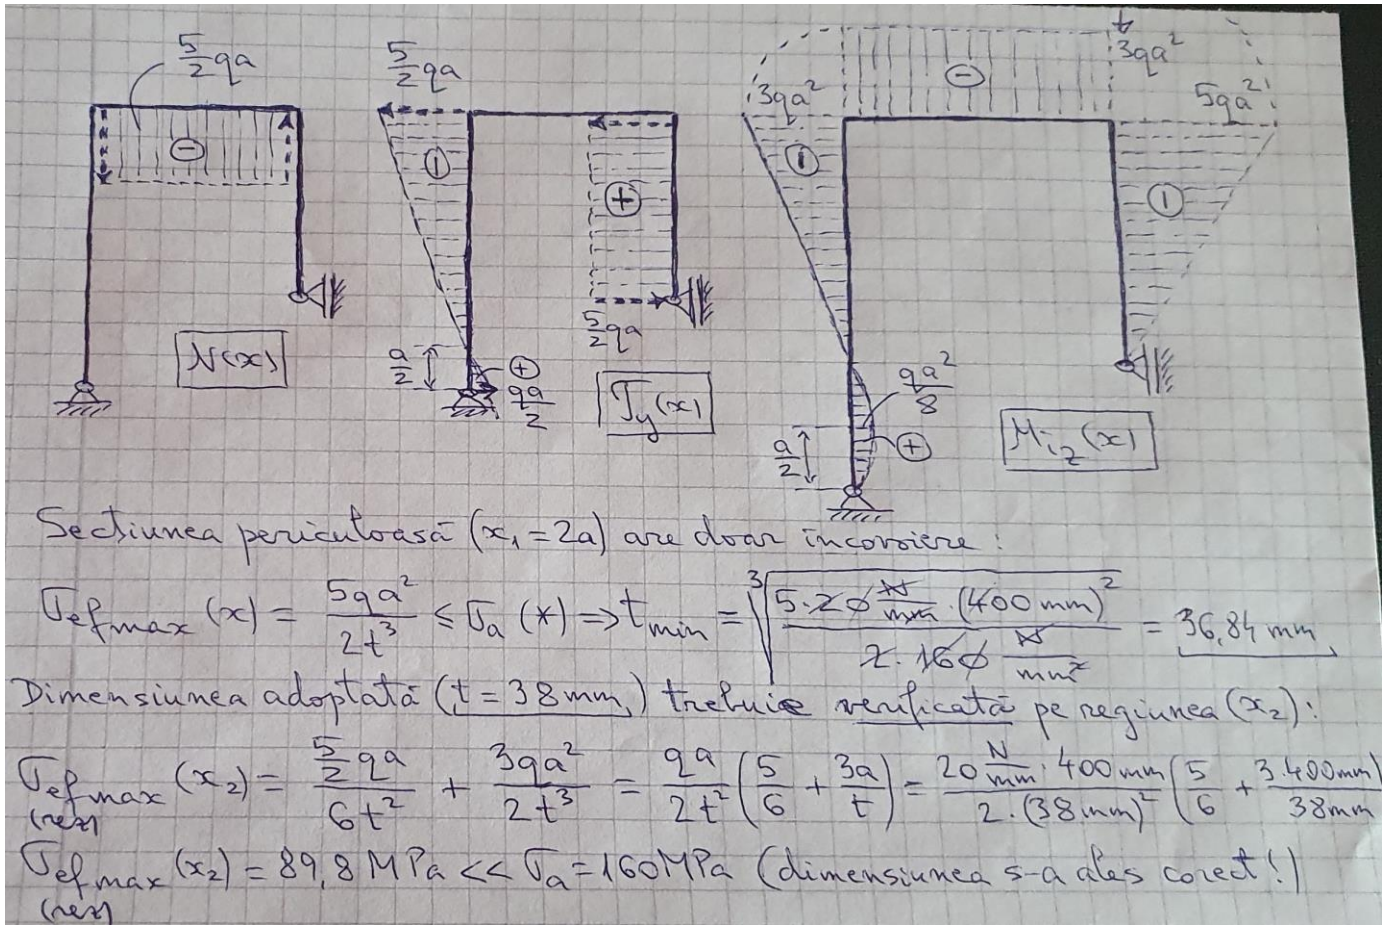 5/2 qa
⊖
N(x)
5/2 qa
⊖
⊕
5/2 qa
a/2
⊕
qa/2
T_y(x)
3qa²
⊖
3qa²
5qa²
⊖
⊖
qa²/8
⊕
a/2
M_iz(x)
Secțiunea periculoasă (x₁ = 2a) are doar încovoiere:
σ_ef max (x) = 5qa²/2t³ ≤ σ_a (*) ⇒ t_min = ∛(5·20 N/mm·(400 mm)²/2·160 N/mm²) = 36,84 mm
Dimensiunea adoptată (t = 38 mm) trebuie verificată pe regiunea (x₂):
σ_ef max (x₂) = 5/2 qa/6t² + 3qa²/2t³ = qa/2t² (5/6 + 3a/t) = 20 N/mm · 400 mm/2·(38 mm)² (5/6 + 3·400 mm/38 mm
(rez)
σ_ef max (x₂) = 89,8 MPa << σ_a = 160 MPa (dimensiunea s-a ales corect!)
(rez)